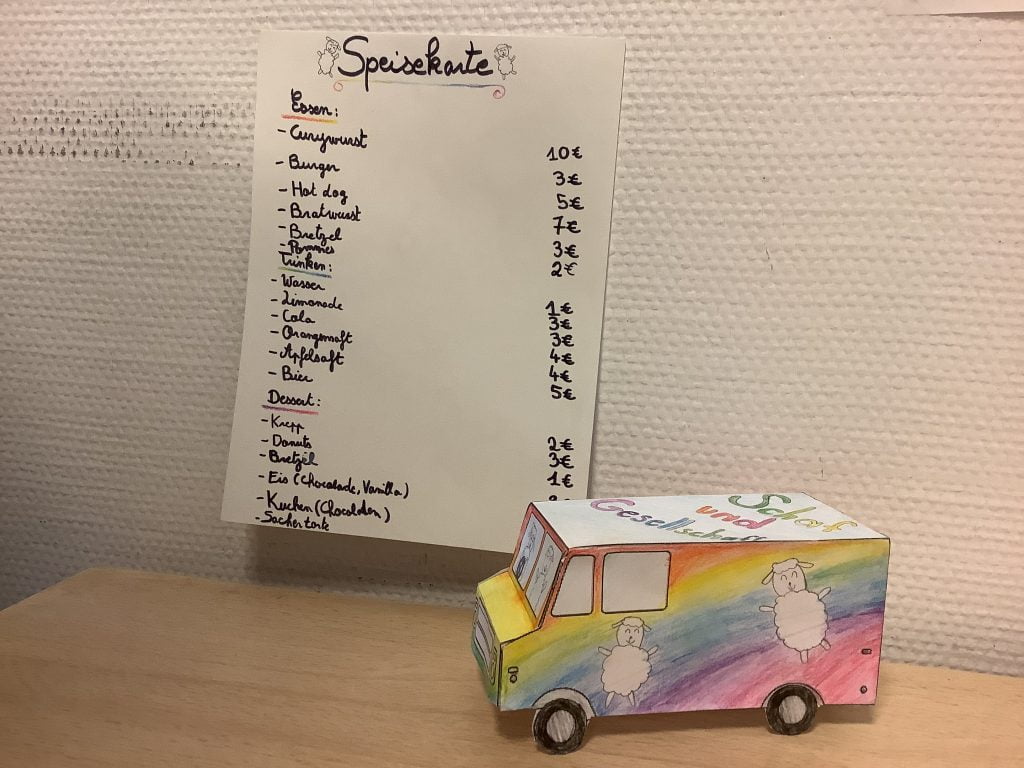 Speisekarte
Essen:
- Curywurst 10€
- Burger 3€
- Hot dog 5€
- Bratwurst 7€
- Bretzel 3€
- Pommes 2€
Trinken:
- Wasser 1€
- Limonade 3€
- Cola 3€
- Orangensaft 4€
- Apfelsaft 4€
- Bier 5€
Dessert:
- Krepp 2€
- Donuts 3€
- Bretzel 1€
- Eis (Chocolade, Vanilla)
- Kuchen (Chocoladen)
- Sachertorte
Schaf
und
Gesellschaft